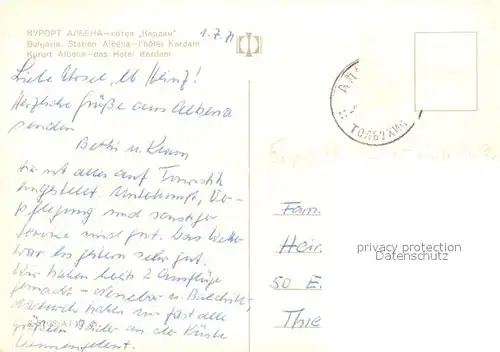 КУРОРТ АЛБЕНА—хотел „Кардам"
Bulgaria. Station Albena—l'hôtel Kardam
Kurort Albena—das Hotel Kardam
1.7.71
Liebe Ursel, lb Heinz!
Herzliche Grüße aus Albena
senden
Betti u. 
Hier ist alles auf Touristik
eingestellt. Unterkunft, Ver-
pflegung und sonstiger
Service sind gut. Das Wetter
war bis gestern sehr gut.
Wir haben 2 Ausflüge
gemacht - Nessebar u. Baltschik,
dadurch haben wir fast alle
größeren Bäder an der Küste
kennengelernt.
ТОЛБУХИН
Fam.
Heir.
50 E.
Thie
privacy protection
Datenschutz